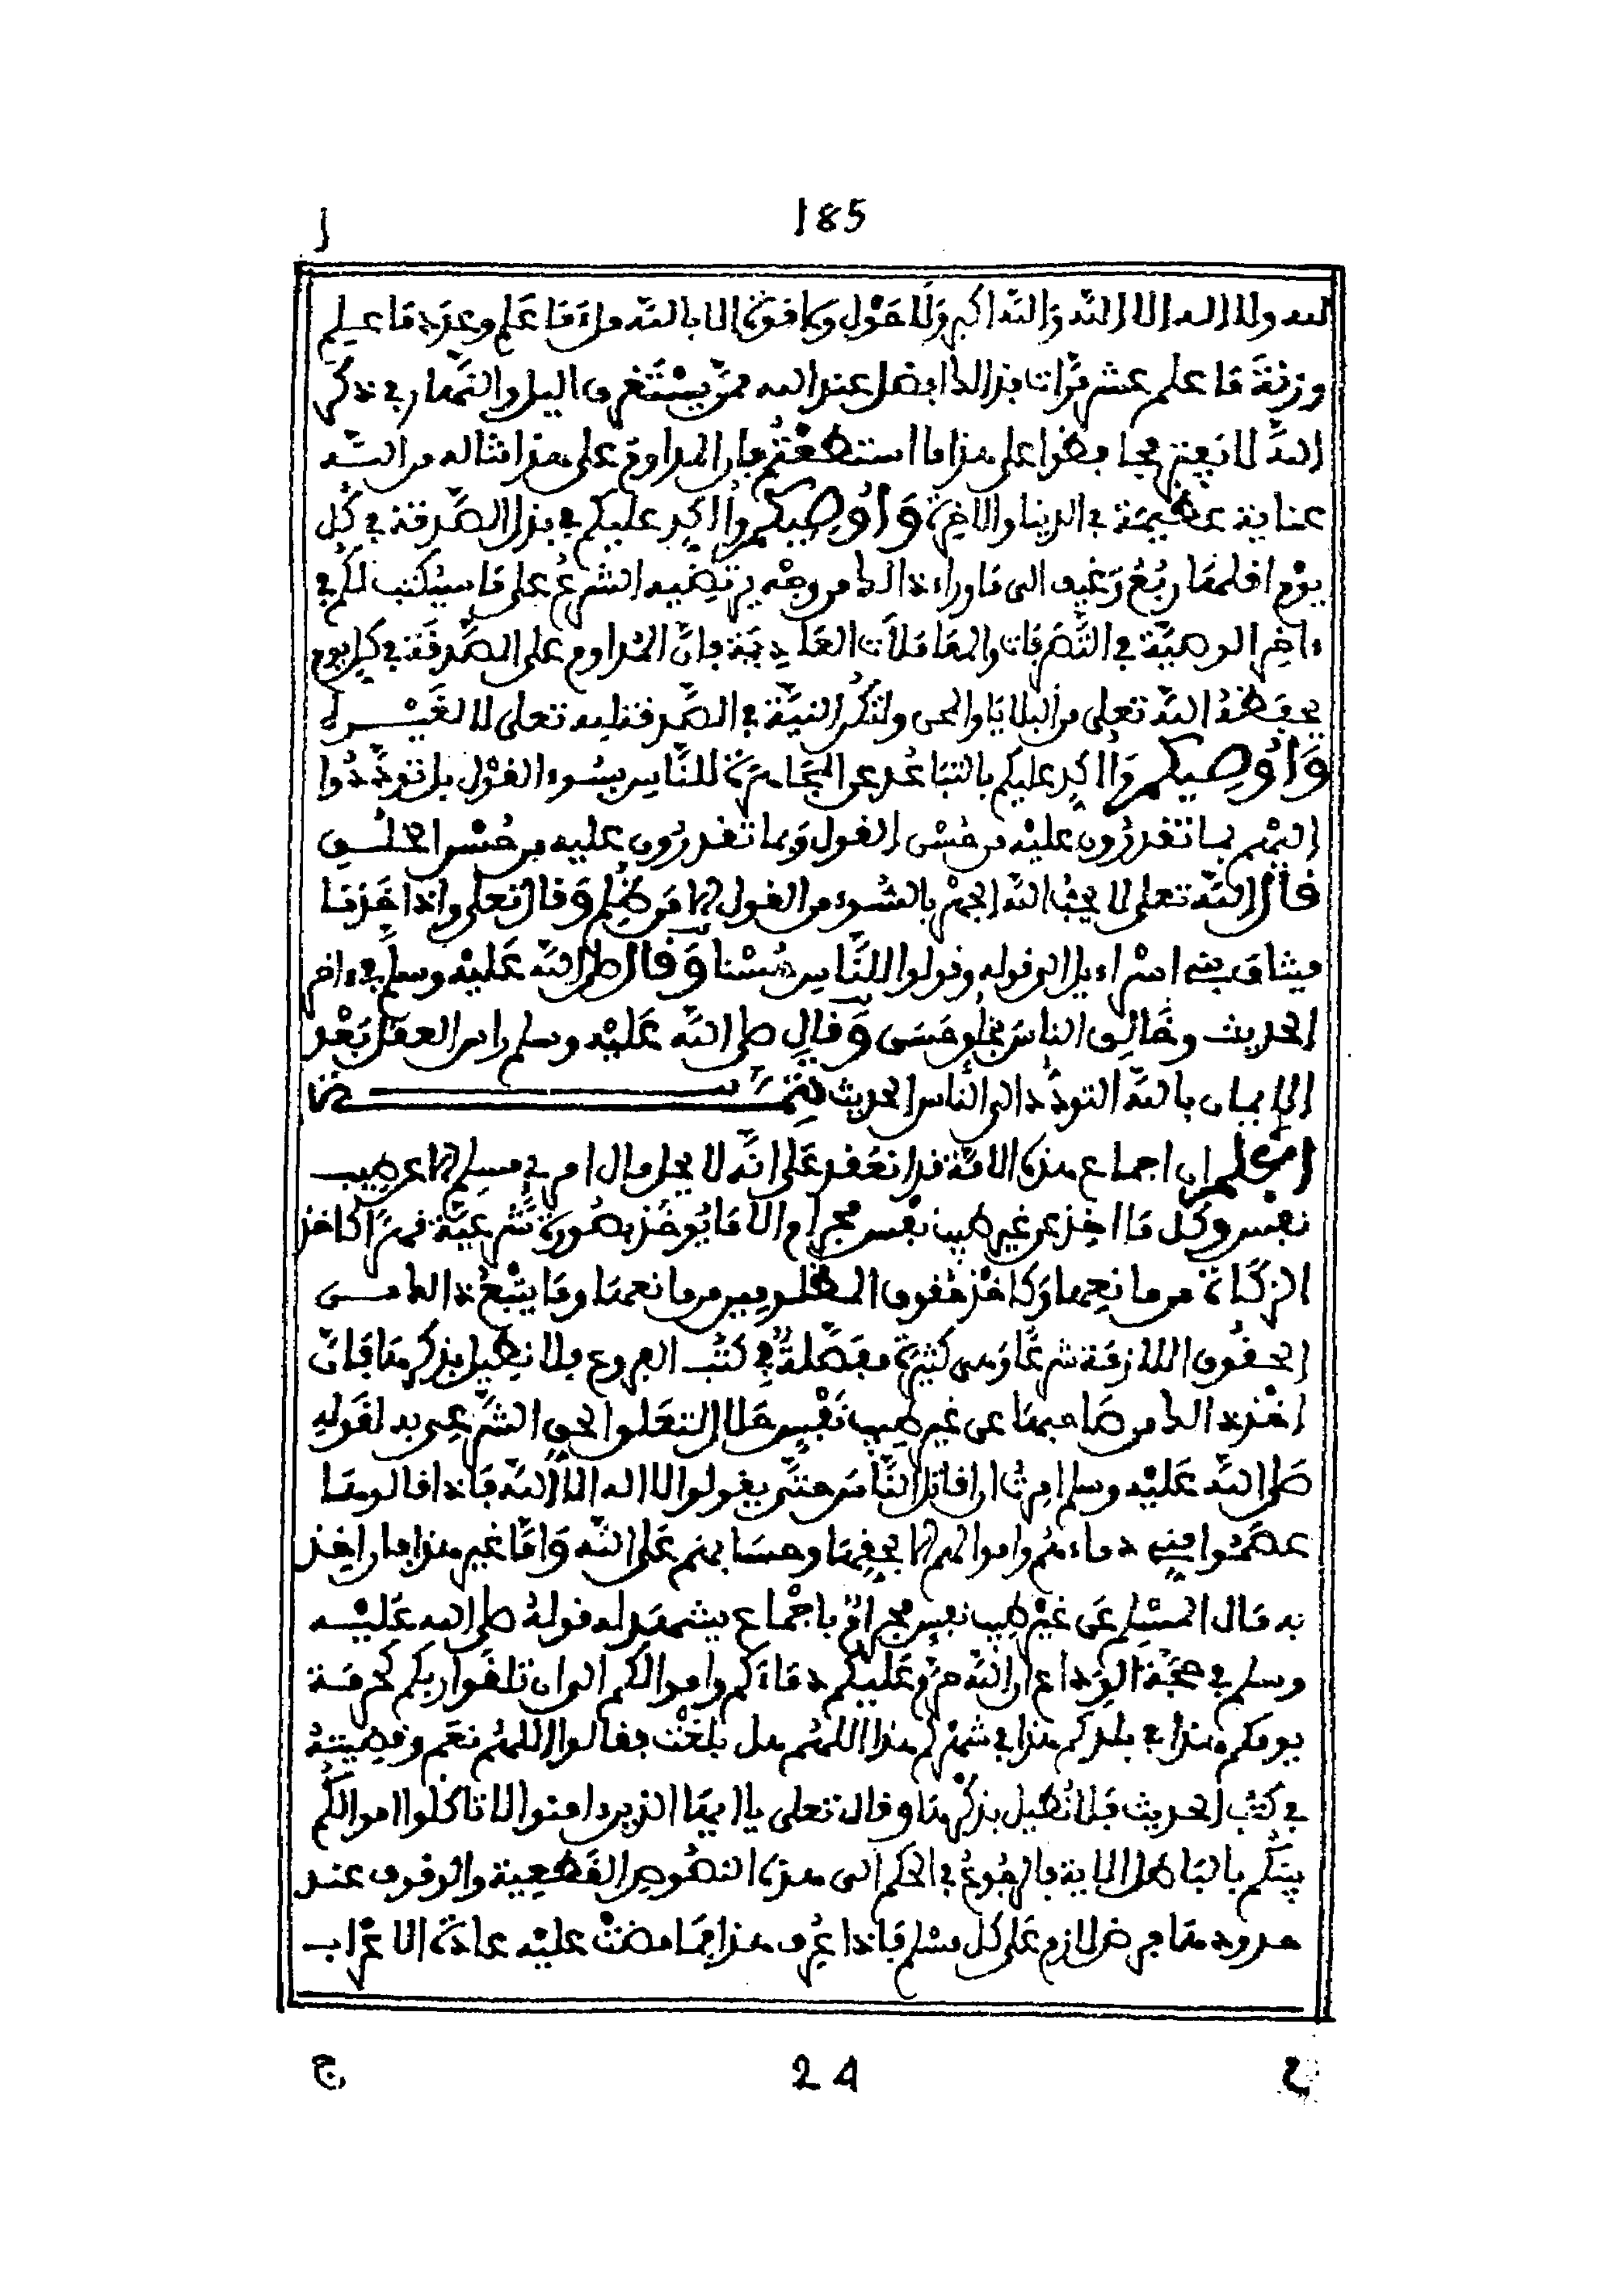 185 ا
لله ولا اله الا الله والله اكبر ولا حول ولا قوة الا بالله ملء ما علم وعدد ما علم
وزنة ما علم عشر مرات فذالك افضل عند الله ممن يستغرق اليل والنهار في ذكر
الله لا يفتر فحافظوا على هذا ما استطعتم فان المداوم على هذا تناله من الله
عناية عظيمة في الدنيا والاخرة وأوصيكم وأأكد عليكم في بذل الصدقة في كل
يوم اقلها ربع رغيف الى ما وراء ذالك من وجه يرتضيه الشرع على ما سيكتب لكم في
ءاخر الوصية في التصرفات والمعاملات العادية فان المداوم على الصدقة في كل يوم
يحفظه الله تعلى من البلايا والمحن ولتكن النية في الصدقة لله تعلى لا لغيره
وأوصيكم وأأكد عليكم بالتباعد عن المجاهرة للناس بسوء القول بل توددوا
اليهم بما تقدرون عليه من حسن القول وبما تقدرون عليه من حسن الخلق
قال الله تعلى لا يحب الله الجهر بالسوء من القول الا من ظلم وقال تعلى واذ اخذنا
ميثاق بني اسراءيل الى قوله وقولوا للناس حسنا وقال صلى الله عليه وسلم في ءاخر
الحديث وخالق الناس بخلق حسن وقال صلى الله عليه وسلم راس العقل بعد
الايمان بالله التودد الى الناس الحديث
اعلم ان اجماع هذه الامة قد انعقد على انه لا يحل مال امرئ مسلم الا عن طيب
نفس وكل ما اخذ عن غير طيب نفس محرام الا ما يوخذ بصورة شرعية قهرا كاخذ
الزكاة من مانعها وكاخذ حقوق المظلومين من مانعها وما يتبع ذالك من
الحقوق اللازمة شرعا وهي كثيرة مفصلة في كتب الفروع فلا نطيل بذكرها فان
اخذ ذالك من صاحبها عن غير طيب نفس حلال لتعلق الحق الشرعي به لقوله
صلى الله عليه وسلم امرت ان اقاتل الناس حتى يقولوا لا اله الا الله فاذا قالوها
عصموا مني دماءهم واموالهم الا بحقها وحسابهم على الله واما غير هذا فان اخذ
به مال المسلم عن غير طيب نفس محرام باجماع يشهد له قوله صلى الله عليه
وسلم في حجة الوداع ان الله حرم عليكم دماءكم واموالكم الى ان تلقوا ربكم كحرمة
يومكم هذا في بلدكم هذا في شهركم هذا اللهم هل بلغت فقالوا اللهم نعم وقصيته
في كتب الحديث فلا نطيل بذكرها وقال تعلى يا ايها الذين ءامنوا لا تاكلوا اموالكم
بينكم بالباطل الاية فالرجوع في الحكم الى هذه النصوص القطعية والوقوف عند
حدودها فرض لازم على كل مسلم فاذا عرف هذا فما مضت عليه عادة الاعراب
ج 24 ج